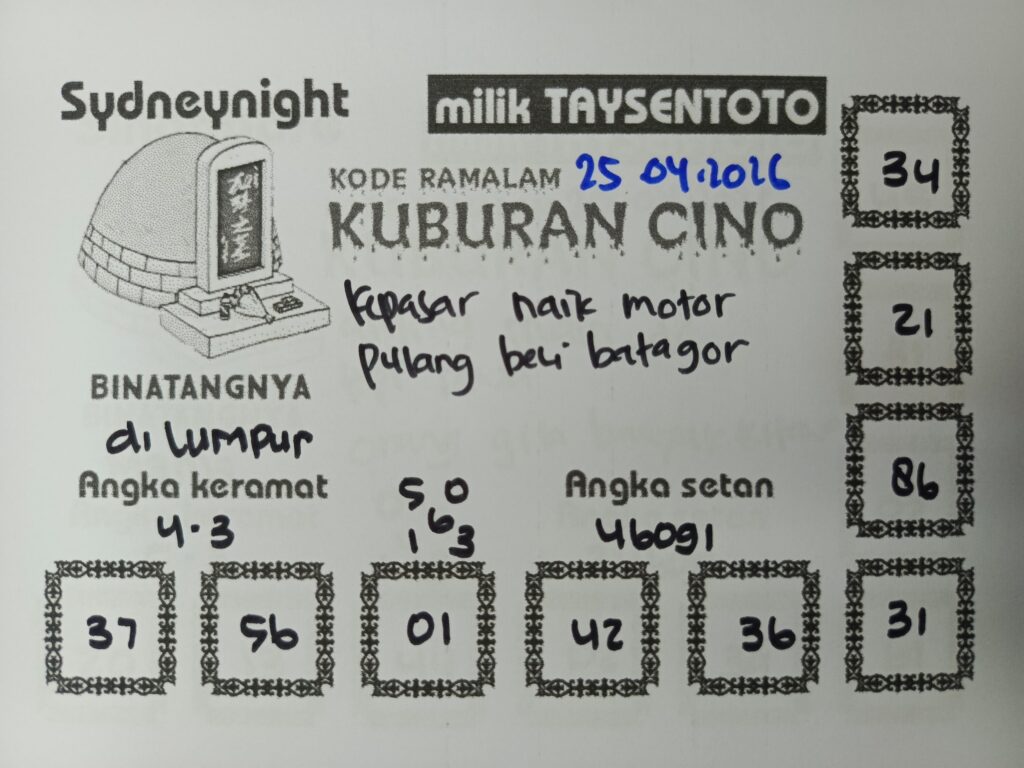 Sydneynight
milik TAYSENTOTO
KODE RAMALAM 25 04.2026
KUBURAN CINO
Kepasar naik motor
pulang beli batagor
BINATANGNYA
di lumpur
Angka keramat
4.3
5 0
6
1 3
Angka setan
46091
34
21
86
31
37
56
01
42
36